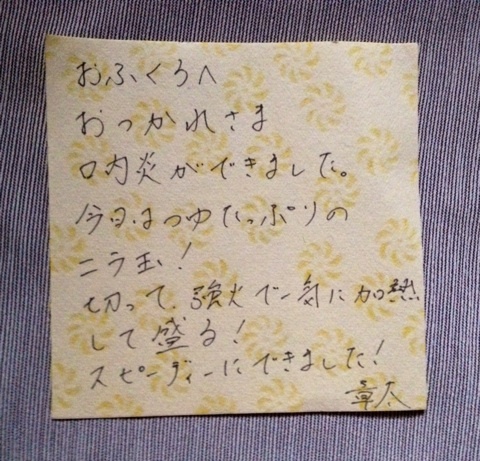 おふくろへ
おつかれさま
口内炎ができました。
今日はつゆたっぷりの
ニラ玉!
切って、強火で一気に加熱
して盛る!
スピーディーにできました!
章太